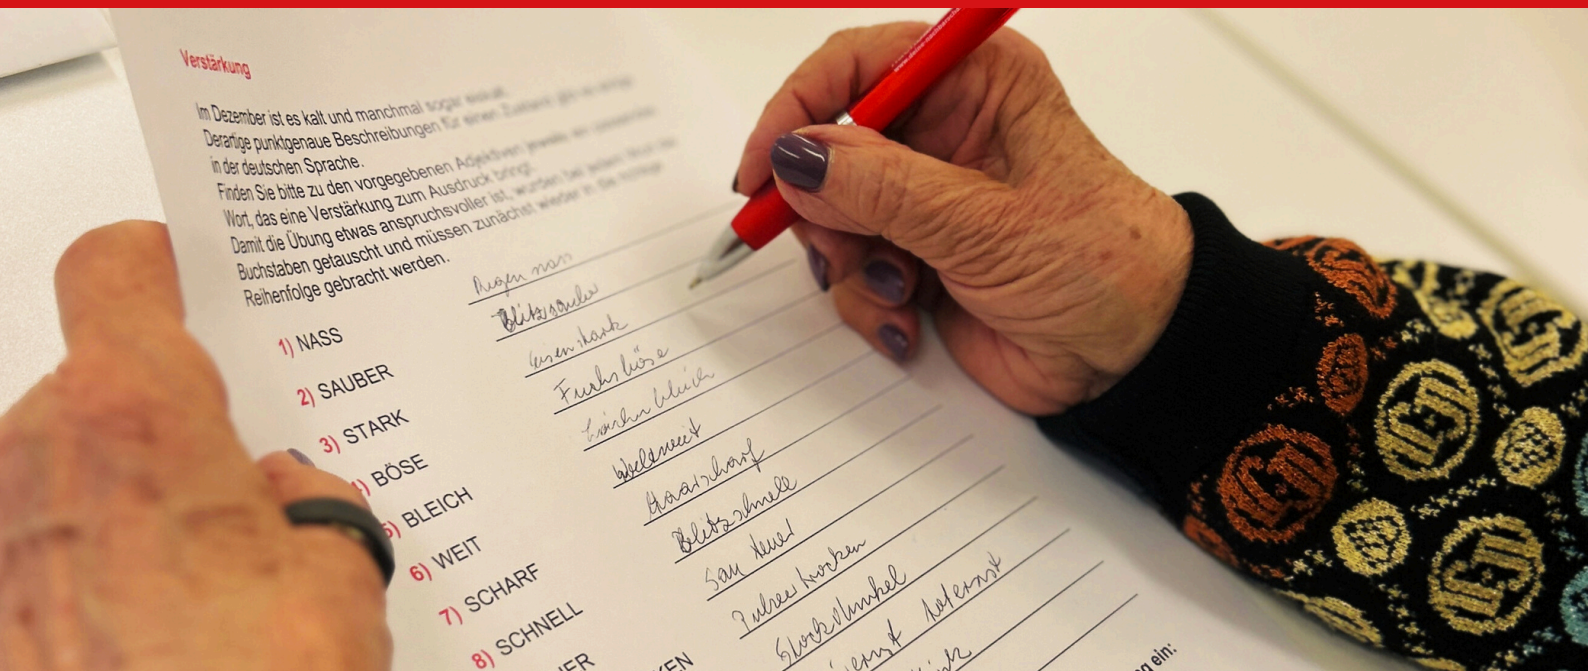 Verstärkung
Im Dezember ist es kalt und manchmal sogar eiskalt.
Derartige punktgenaue Beschreibungen für einen Zustand gibt es einige
in der deutschen Sprache.
Finden Sie bitte zu den vorgegebenen Adjektiven jeweils ein
Wort, das eine Verstärkung zum Ausdruck bringt.
Damit die Übung etwas anspruchsvoller ist, wurden bei jedem Wort
Buchstaben getauscht und müssen zunächst wieder in die richtige
Reihenfolge gebracht werden.
1) NASS
Regen nass
2) SAUBER
Blitzsauber
3) STARK
eisenstark
4) BÖSE
Fuchsböse
5) BLEICH
bleich
6) WEIT
Weltweit
7) SCHARF
Haarscharf
8) SCHNELL
Blitzschnell
Sau teuer
Pulvertrocken
Stockdunkel
toternst
KEN
g ein: